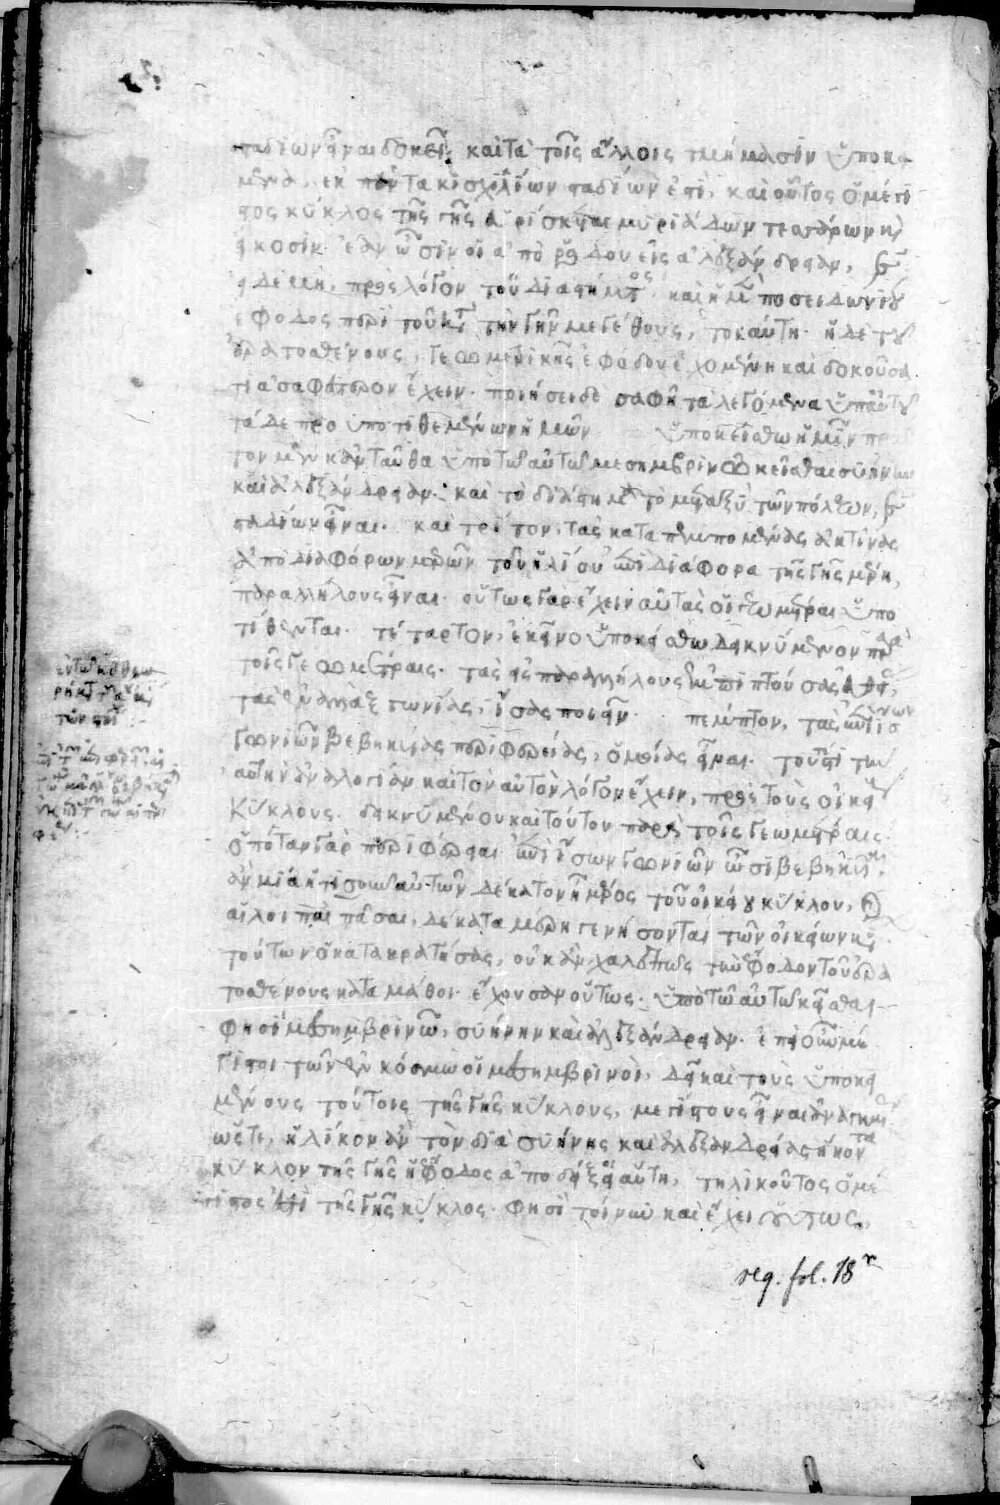 σταδίων εἶναι δοκεῖ· καὶ τὰ τοῖς ἄλλοις τμήμασιν ὑποκεί
μενα. εκ πέντακισχιλίων σταδίων ἐστὶ, καὶ οὗτος ὁ μέγι
στος κύκλος τῆς γῆς εὑρίσκεται μυριάδων τεσσάρων κ
εἴκοσιν· ἐὰν ὦσιν οἱ ἀπὸ ῥόδου εἰς ἀλεξάνδρειαν, ͵ε
εἰ δὲ μὴ, πρὸς λόγον τοῦ διαστήματος· καὶ ἡ μὲν ποσειδωνίου
ἔφοδος περὶ τοῦ κατὰ τὴν γῆν μεγέθους, τοιαύτη· ἡ δὲ τοῦ
ἐρατοσθένους, γεωμετρικῆς ἐφόδου ἐχομένη καὶ δοκοῦσα
τι ἀσαφέστερον ἔχειν· ποιήσει δὲ σαφῆ τὰ λεγόμενα ὑπ' αὐτοῦ
τάδε προϋποτιθεμένων ἡμῶν ὑποκείσθω ἡμῖν πρῶ
τον μὲν κἀνταῦθα ὑπὸ τῶ αὐτῶ μεσημβρινῶ κεῖσθαι συήνην
καὶ ἀλεξάνδρειαν· καὶ τὸ διάστημα τὸ μεταξὺ τῶν πόλεων, ͵ε
σταδίων εἶναι. καὶ τρίτον, τὰς καταπεμπομένας ἀκτῖνας
ἀπὸ διαφόρων μερῶν τοῦ ἡλίου ἐπὶ διάφορα τῆς γῆς μέρη,
παραλλήλους εἶναι· οὕτως γὰρ ἔχειν αὐτὰς οἱ γεωμέτραι ὑπο
τίθενται. τέταρτον, ἐκεῖνο ὑποκείσθω δεικνύμενον παρὰ
τοῖς γεωμέτραις. τὰς εἰς παραλλήλους ἐμπιπτούσας εὐθείας,
τὰς ἐναλλὰξ γωνίας, ἴσας ποιεῖν. πέμπτον, τὰς ἐπὶ ἴσων
γωνιῶν βεβηκυίας περιφερείας, ὁμοίας εἶναι. τουτέστι τὴν
αὐτὴν ἀναλογίαν καὶ τὸν αὐτὸν λόγον ἔχειν, πρὸς τοὺς οἰκείους
κύκλους. δεικνυμένου καὶ τούτου παρὰ τοῖς γεωμέτραις.
ὁπόταν γὰρ περιφέρειαι ἐπὶ ἴσων γωνιῶν ὦσι βεβηκυῖαι,
ἂν μία ἡτισοῦν αὐτῶν δέκατον ἦ μέρος τοῦ οἰκείου κύκλου, καὶ
αἱ λοιπαὶ πᾶσαι, δέκατα μέρη γενήσονται τῶν οἰκείων κύ
τούτων ὁ κατακρατήσας, οὐκ ἂν χαλεπῶς τὴν ἔφοδον τοῦ ἐρα
τοσθένους καταμάθοι· ἔχουσαν οὕτως· ὑπὸ τῶ αὐτῶ κεῖσθαι
φησὶ μεσημβρινῶ, συήνην καὶ ἀλεξάνδρειαν. ἐπεὶ οὖν μέ
γιστοι τῶν ἐν κόσμω οἱ μεσημβρινοὶ, δεῖ καὶ τοὺς ὑποκει
μένους τούτοις τῆς γῆς κύκλους, μεγίστους εἶναι ἀναγκαίως
ὥστε, ἡλίκον ἂν τὸν διὰ συήνης καὶ ἀλεξανδρείας ἥκοντα
κύκλον τῆς γῆς ἡ ἔφοδος ἀποδείξει αὕτη, τηλικοῦτος ὁ μέ
γιστος ἐστὶ τῆς γῆς κύκλος. φησὶ τοίνυν καὶ ἔχει οὕτως,
seq. fol. 18r